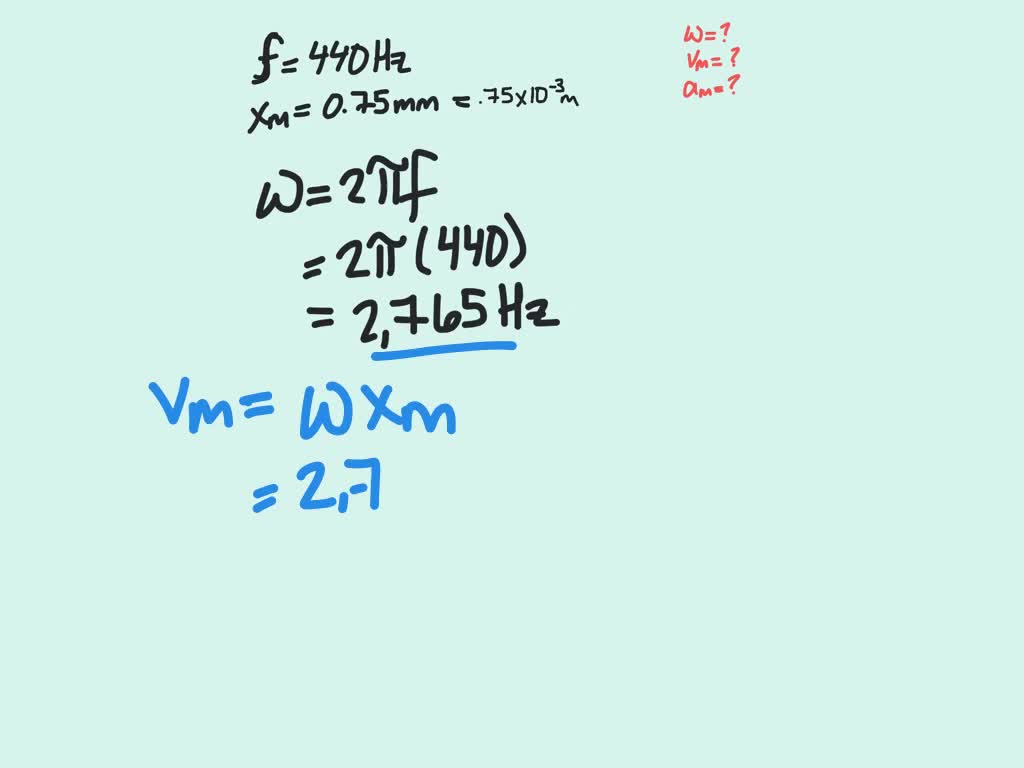 f = 440 Hz
xm = 0.75 mm = .75 x 10⁻³ m
ω = ?
vm = ?
am = ?
ω = 2πf
= 2π (440)
= 2,765 Hz
vm = ω xm
= 2,7